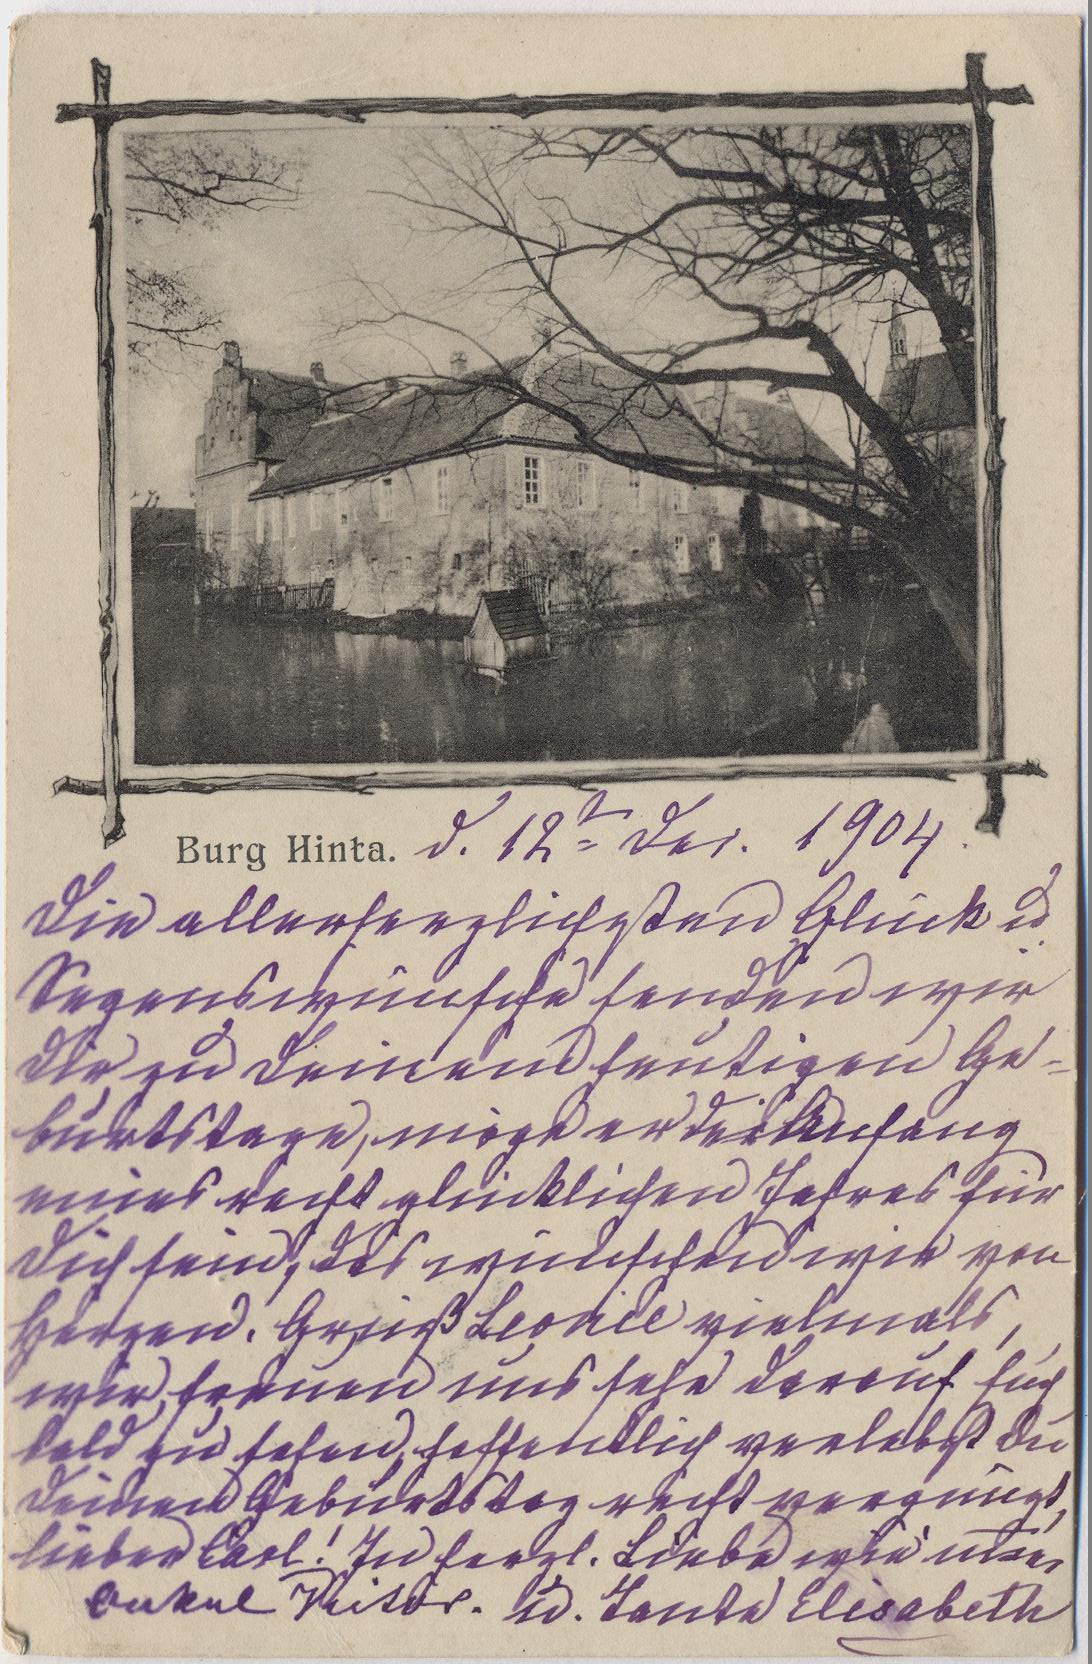 Burg Hinta. d. 12t Dez. 1904.
Die allerherzlichsten Glück u
Segenswünsche senden wir
Dir zu Deinem heutigen Ge-
burtstage, möge er der Anfang
eines recht glücklichen Jahres für
Dich sein, das wünschen wir von
Herzen. Grüß Leonie vielmals,
wir freuen uns sehr darauf Euch
bald zu sehen, hoffentlich verlebst Du
Deinen Geburtstag recht vergnügt,
lieber Carl! In herzl. Liebe wie immer
Onkel Victor. u. Tante Elisabeth